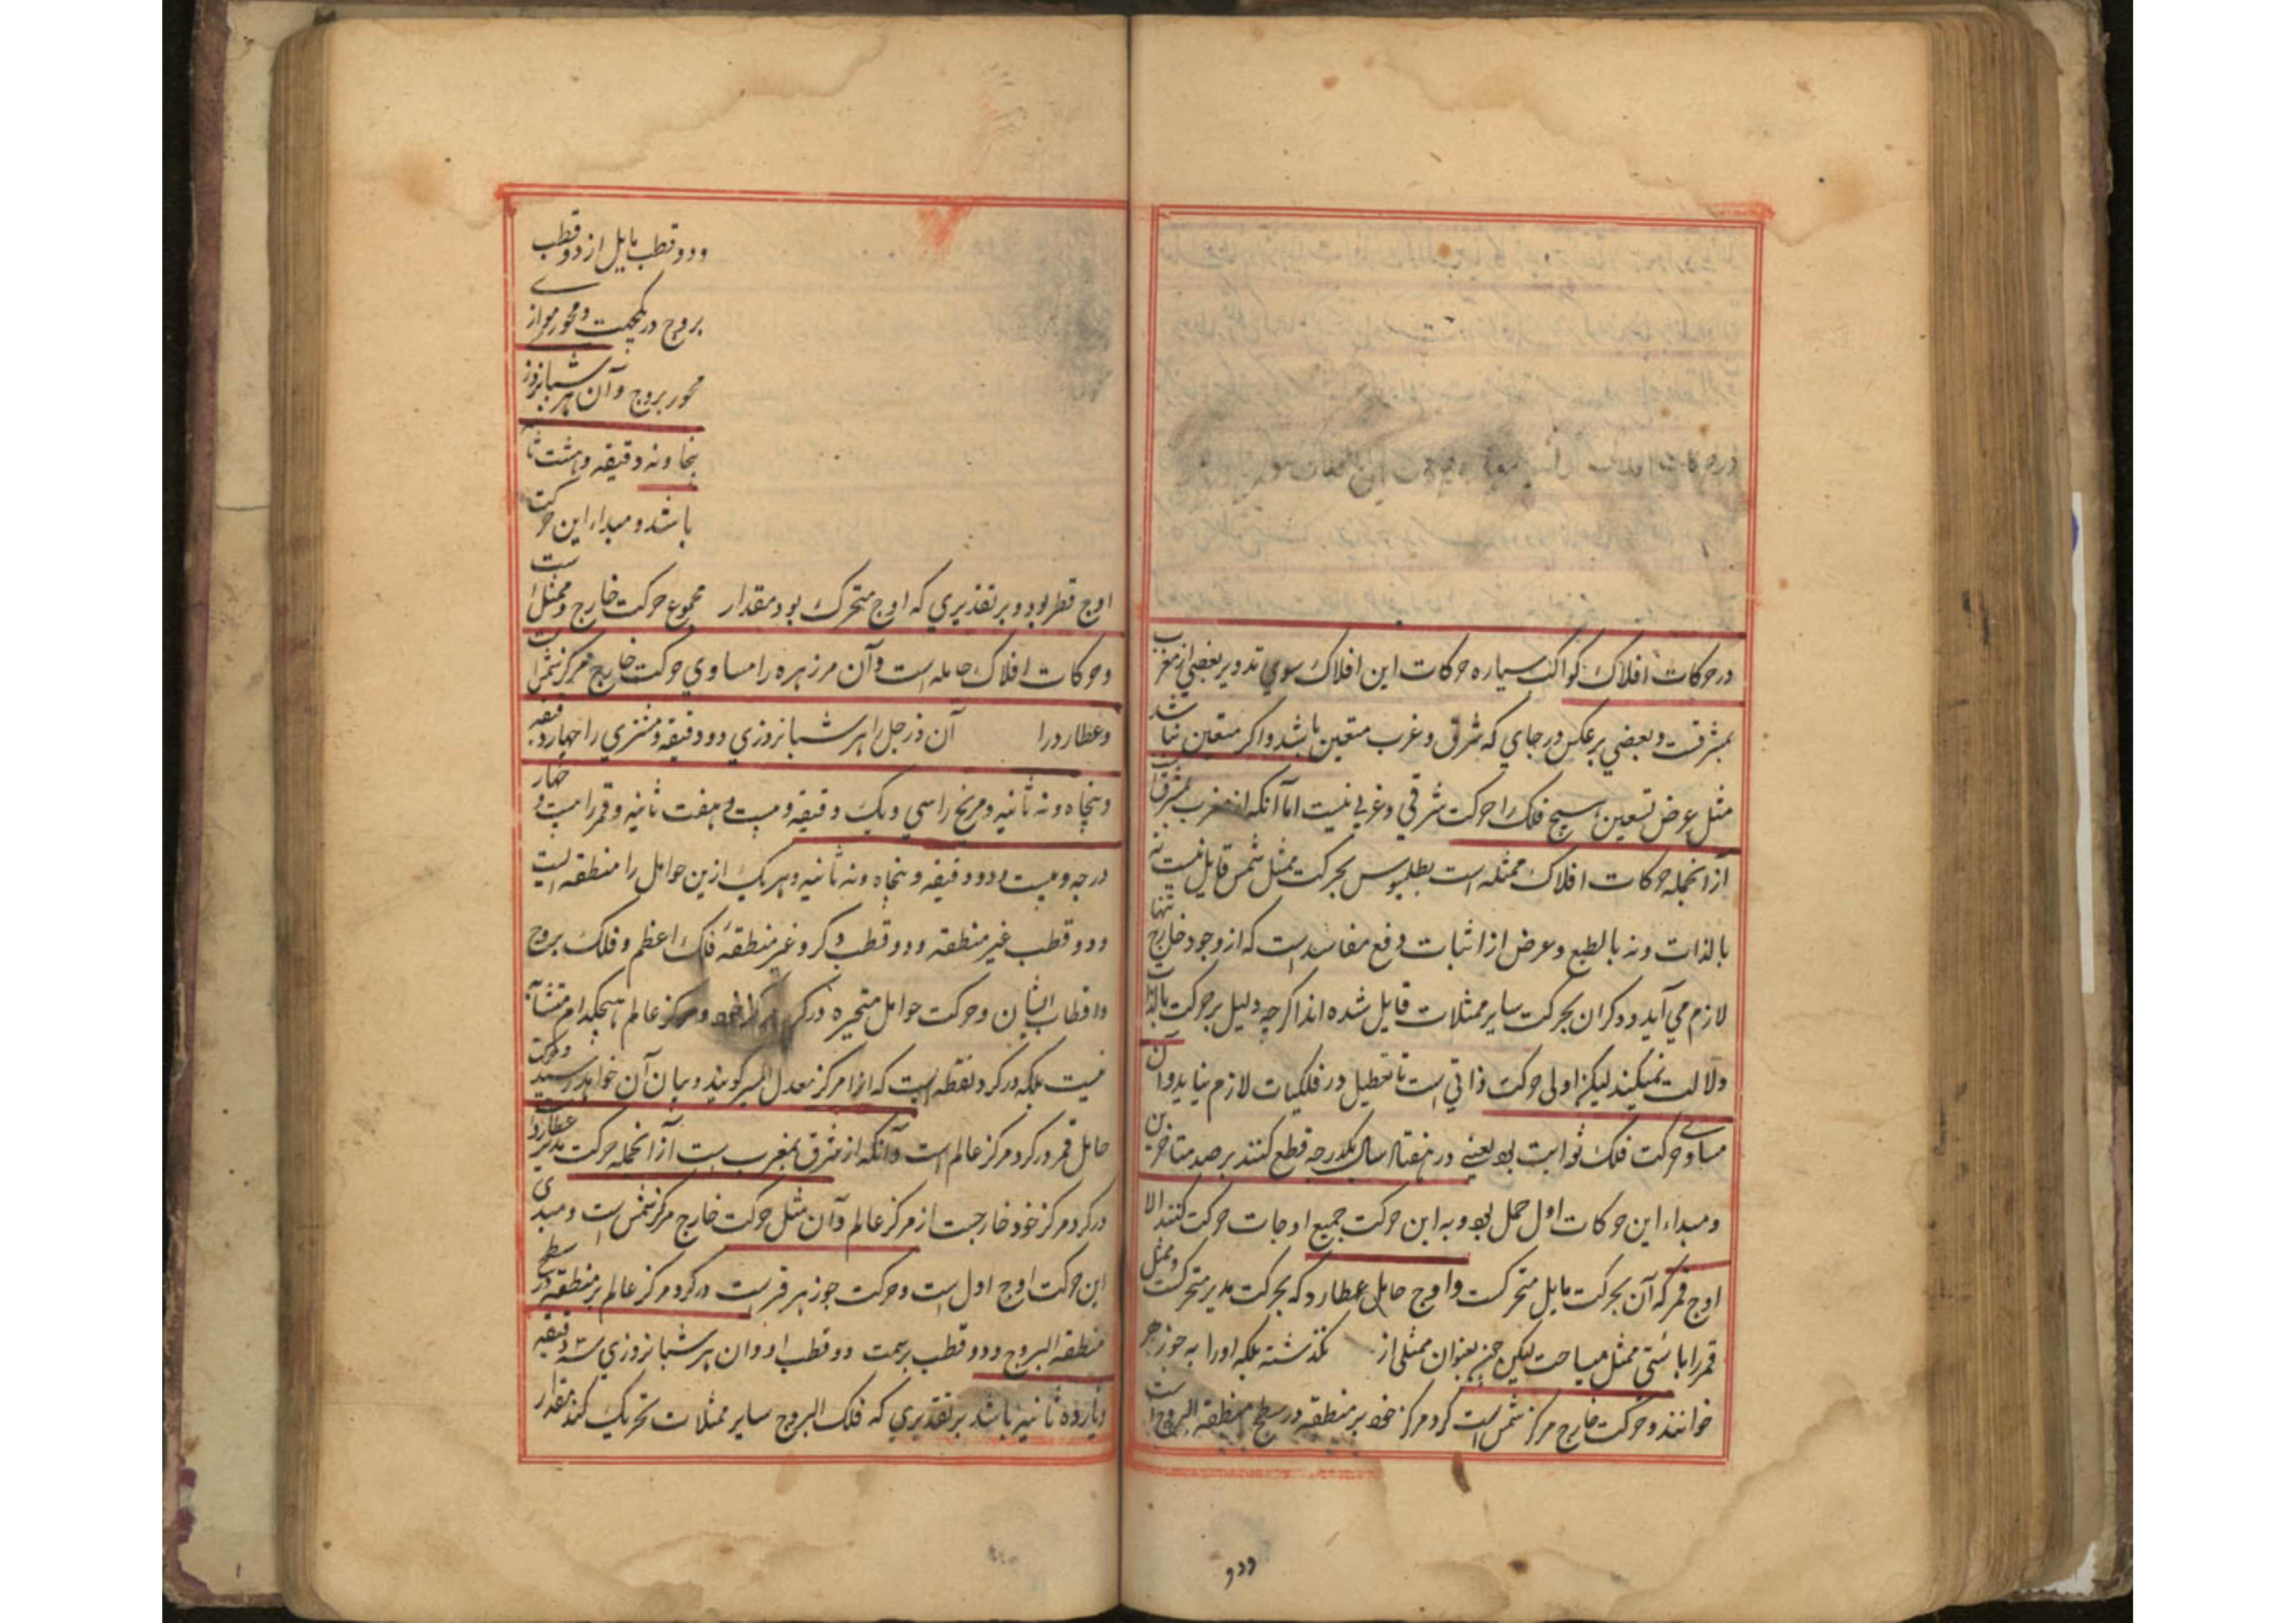 در حرکات افلاک کواکب سیاره حرکات این افلاک سوی تدویر بعضی از مغرب
بمشرقست و بعضی برعکس در جای که شرق و غرب متعین باشد و اگر متعین نباشد
مثل عرض تسعین هیچ فلک را حرکت شرقی و غربی نیست اما آنکه از مغرب بمشرقست
از آنجمله حرکات افلاک ممثله است بطلیموس بحرکت ممثل شمس قایل نیست نه
بالذات و نه بالطبع و عرض از اثبات دفع مفاسد است که از وجود خارج تنها
لازم می آید و دکران بحرکت سایر ممثلات قایل شده اند اگرچه دلیل بر حرکت بالذات
دلالت نمیکند لیکن اولی حرکت ذاتی است تا تعطیل در فلکیات لازم نیاید و آن
مساوی حرکت فلک ثوابت بود یعنی در هفتاد سال یکدرجه قطع کنند برصد متاخرین
و مبداء این حرکات اول حمل بود و به این حرکت جمیع اوجات حرکت کنند الا
اوج قمر که آن بحرکت مایل متحرکست و اوج حامل عطارد که بحرکت مدیر متحرکست و ممثل
قمر را بایستی ممثل میساخت لیکن چون بعنوان ممثلی از نگذشته بلکه اورا به جوزهر
خوانند و حرکت خارج مرکز شمس است گرد مرکز خود بر منطقه در سطح منطقة البروج است
ودو
ودو قطب مایل از دو قطب
بروج در یکجهت و محور موازی
محور بروج و آن هر شبانروز
پنجا ونه دقیقه و هشت ثا
باشد و مبداء این حرکت
اوج قطر بود و بر تقدیری که اوج متحرک بود مقدار مجموع حرکت خارج و ممثل است
و حرکات افلاک حامله است و آن مر زهره را مساوی حرکت خارج مرکز شمس است
و عطارد را آن و زحل را هر شبانروزی دو دقیقه و مشتری را چهار دقیقه
و پنجاه ونه ثانیه و مریخ را سی و یک دقیقه و بیست و هفت ثانیه و قمر را بیست و چهار
درجه و بیست و دو دقیقه و پنجاه ونه ثانیه و هر یک ازین حوامل را منطقه ایست
ودو قطب غیر منطقه ودو قطب دکر و غیر منطقهٔ فلک اعظم و فلک بروج
و اقطاب ایشان و حرکت حوامل متحیره در گرد مرکز خود و مرکز عالم هیچکدام متشابه
نیست بلکه در گرد نقطه است که آنرا مرکز معدل المسیر گویند و بیان آن خواهد رسید و حرکت
حامل قمر در گرد مرکز عالم است و آنکه از مشرق بمغرب است از آنجمله حرکت مدیر عطارد
در گرد مرکز خود خارجست از مرکز عالم و آن مثل حرکت خارج مرکز شمس است و مبدی
این حرکت اوج اول است و حرکت جوزهر قمر است در گرد مرکز عالم بر منطقه در سطح
منطقة البروج ودو قطب بر سمت دو قطب او و آن هر شبانروزی سه دقیقه
و یازده ثانیه باشد بر تقدیری که فلک البروج سایر ممثلات تحریک کند مقدار